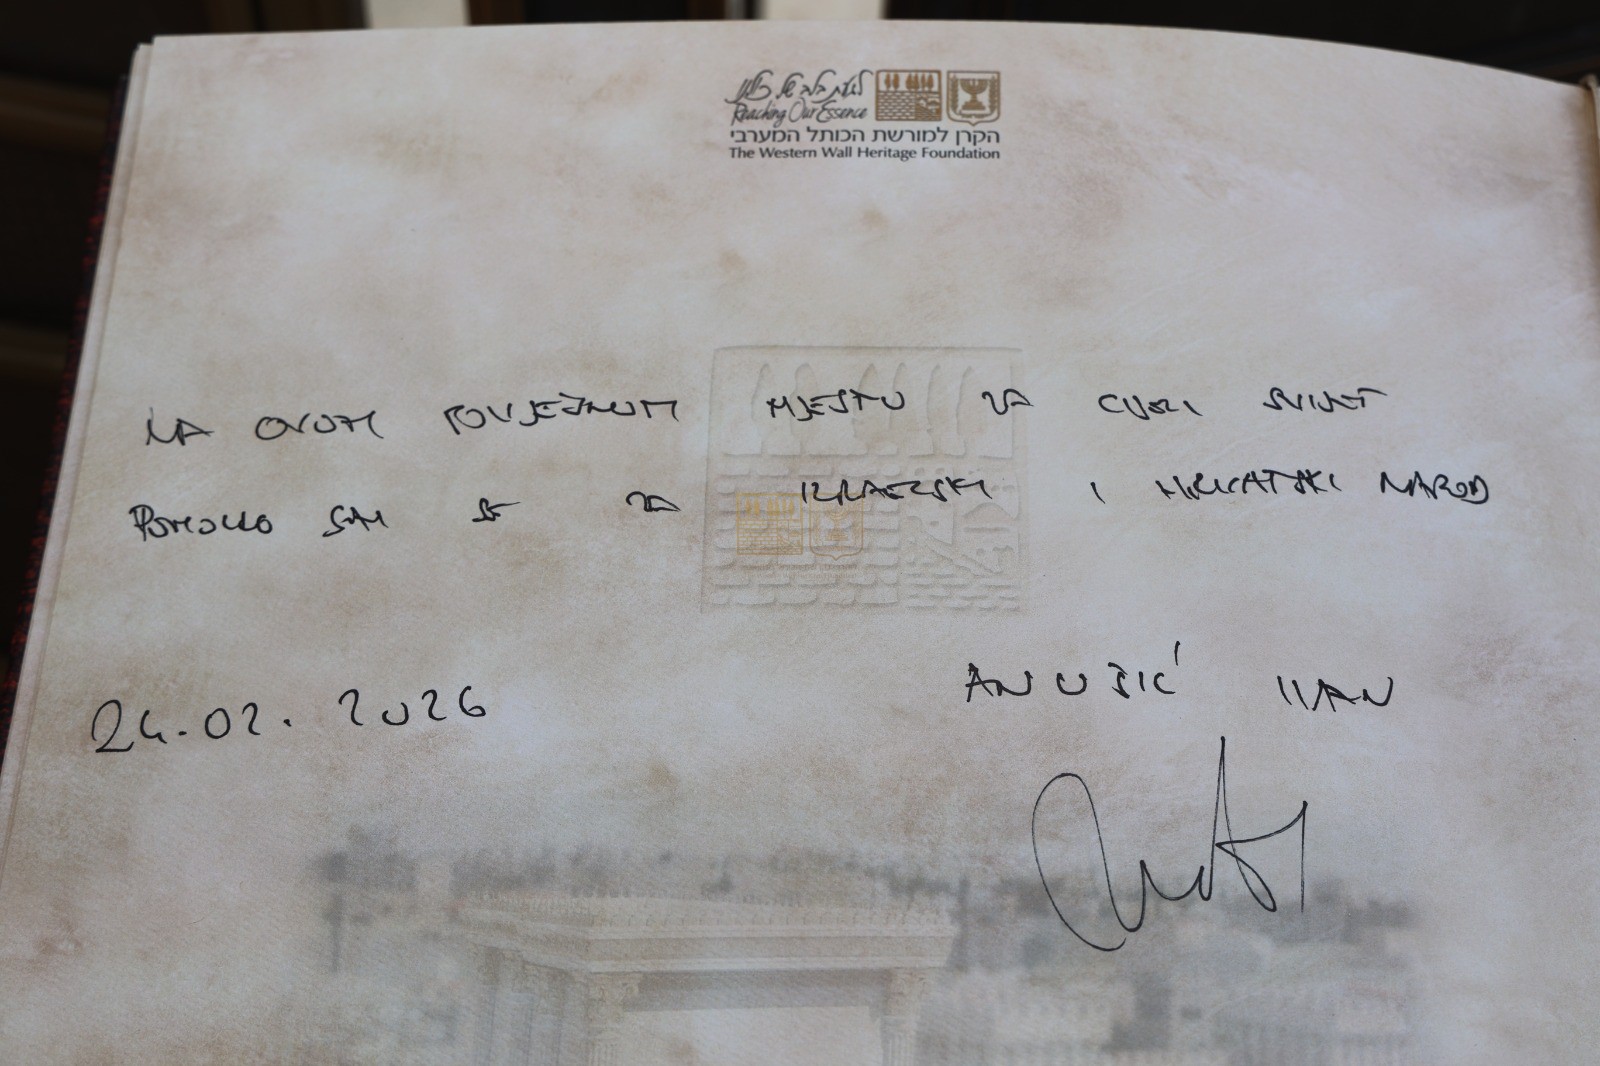 לגעת בלב של כולנו
Reaching Our Essence
הקרן למורשת הכותל המערבי
The Western Wall Heritage Foundation
NA OVOM POVJESNOM MJESTU ZA CIJELI SVIJET
POMOLIO SAM SE ZA IZRAELSKI I HRVATSKI NAROD
24.02.2026
ANUŠIĆ IVAN